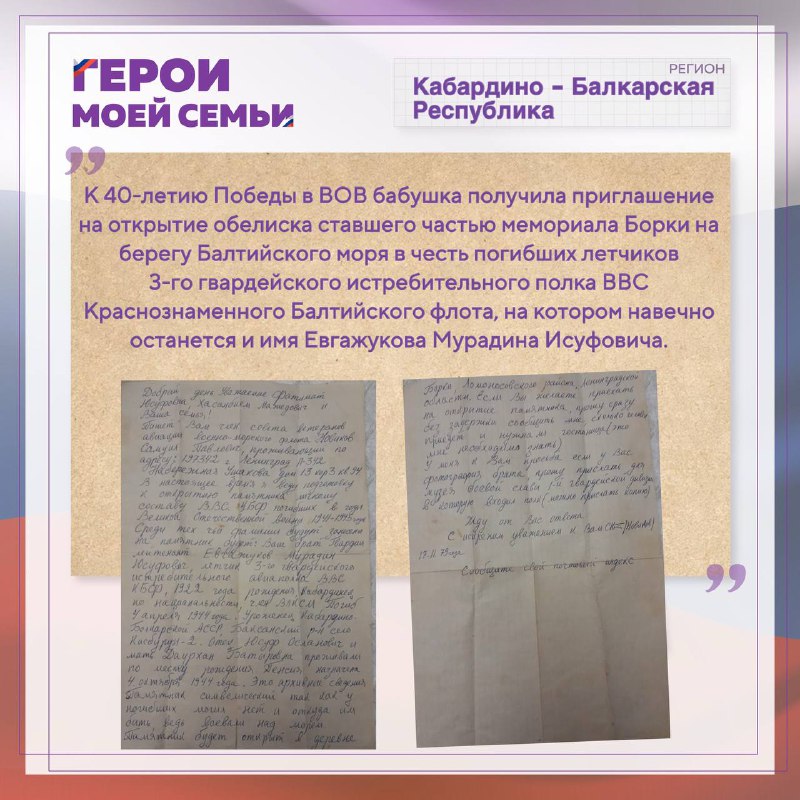 ГЕРОИ
МОЕЙ СЕМЬИ
РЕГИОН
Кабардино - Балкарская
Республика
К 40-летию Победы в ВОВ бабушка получила приглашение
на открытие обелиска ставшего частью мемориала Борки на
берегу Балтийского моря в честь погибших летчиков
3-го гвардейского истребительного полка ВВС
Краснознаменного Балтийского флота, на котором навечно
останется и имя Евгажукова Мурадина Исуфовича.
Добрый день Уважаемые Фатимат
Юсуфовна Хасанович и
Ваша семья!
Пишет Вам член совета ветеранов
авиации военно-морского флота Новиков
Самуил Павлович, проживающий по
адресу: г. Ленинград
Набережная Ушакова дом 13 кв 34
В настоящее время я веду подготовку
к открытию памятника летному
составу ВВС КБФ погибших в годы
Великой Отечественной войны 1941-1945 года
Среди тех чьи фамилии будут
на памятнике будет: Ваш брат Гвардии
лейтенант Мурадин
Юсуфович летчик 3-го гвардейского
истребительного авиаполка ВВС
КБФ, 1922 года рождения, кабардинец
по национальности, член ВЛКСМ. Погиб
4 апреля 1944 года. Уроженец Кабардино-
Балкарской АССР, Баксанский р-н село
-2. Отец Юсуф и
мать Батыровна проживали
по месту рождения. Пенсия назначена
4 октября 1944 года. Это архивные сведения
Памятник символический так как у
погибших могил нет и откуда им
быть ведь воевали над морем
Памятник будет открыт в деревне
Борки Ломоносовского района, Ленинградской
области. Если Вы желаете приехать
на открытие памятника, прошу сразу
без задержки сообщить мне сколько
приедет и нужна ли гостиница (это
мне необходимо знать)
У меня к Вам просьба если у Вас
фотография брата прошу прислать для
музея боевой славы 1-й гвардейской дивизии
в которую входил полк (можно прислать копию)
Жду от Вас ответа
С искренним уважением к Вам
Сообщите свой почтовый индекс